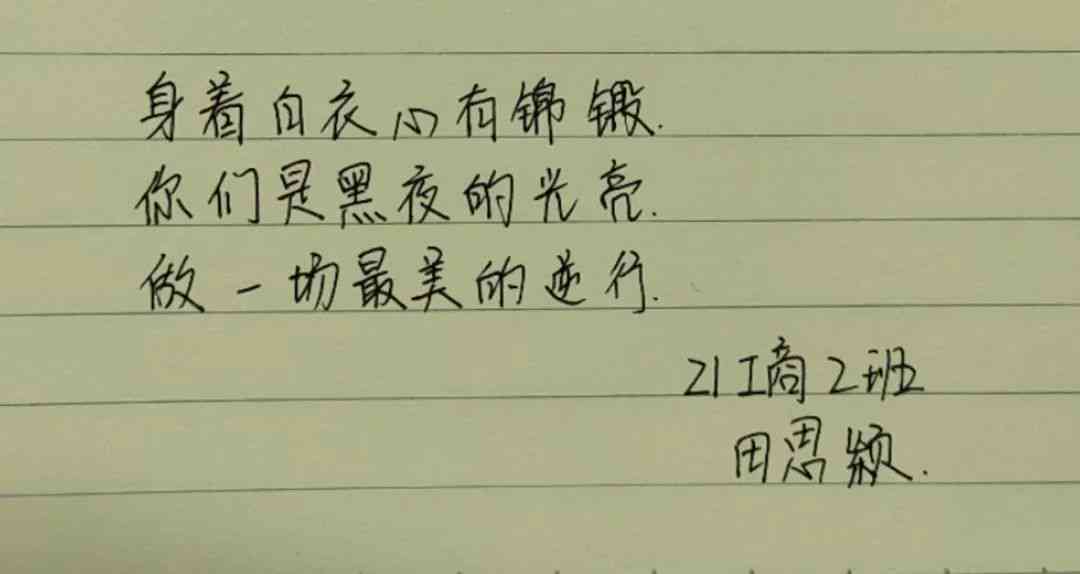 身着白衣心有锦锻.
你们是黑夜的光亮.
做一场最美的逆行.
21工商2班
田思颖.